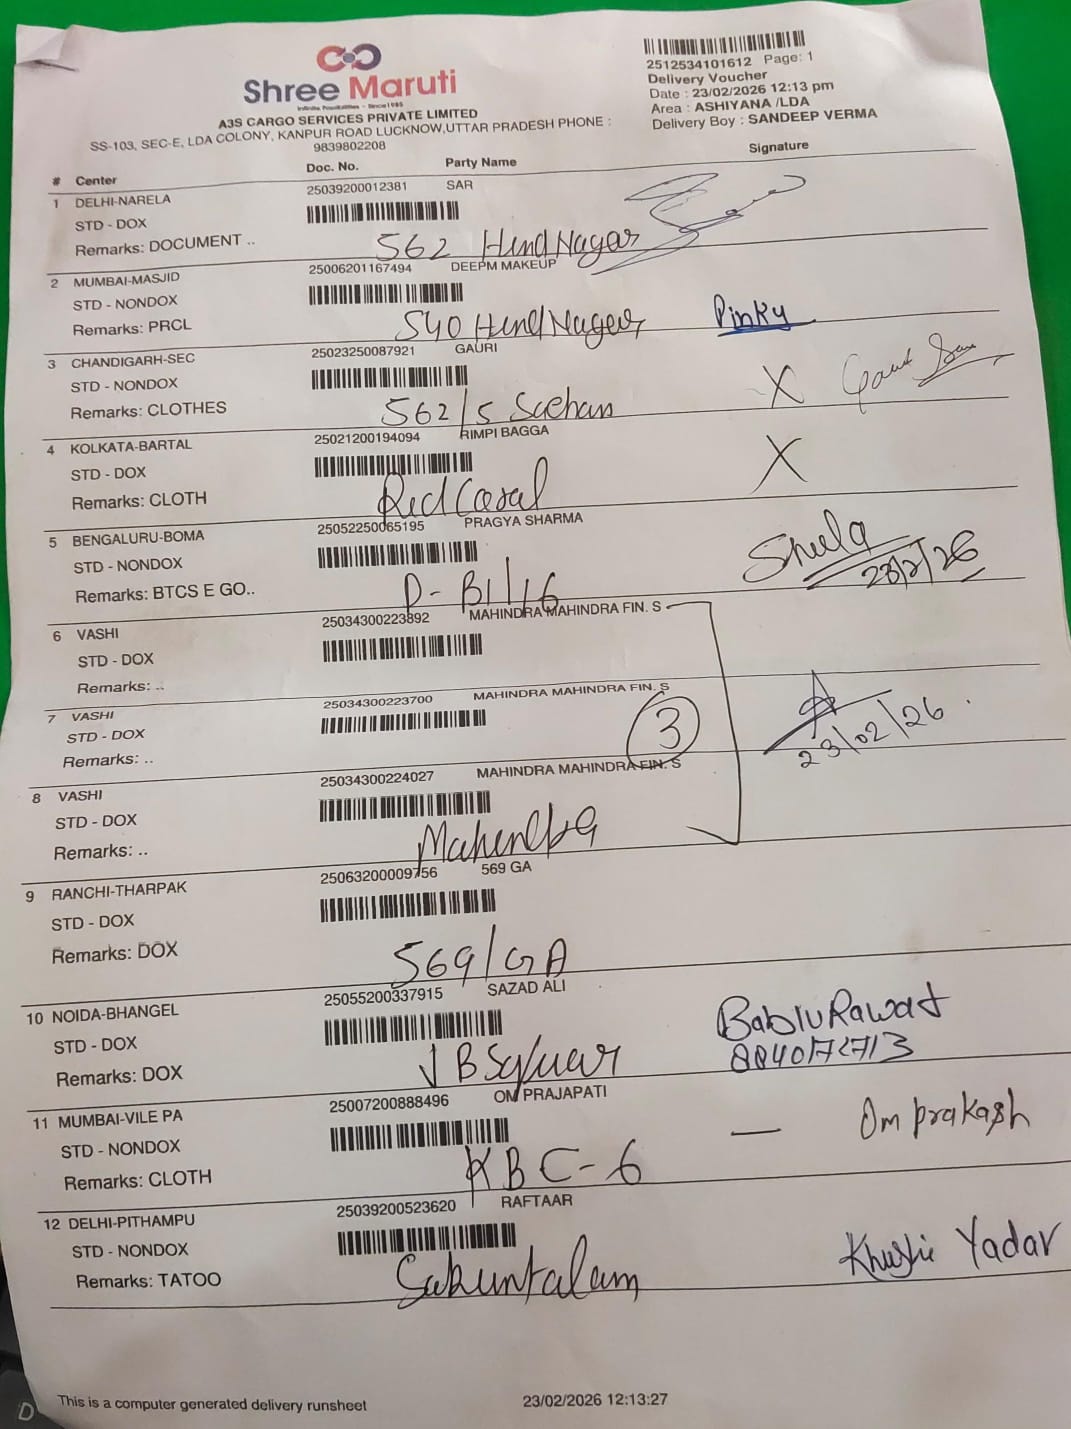 Shree Maruti
Infinite Possibilities - Since 1985
A3S CARGO SERVICES PRIVATE LIMITED
SS-103, SEC-E, LDA COLONY, KANPUR ROAD LUCKNOW,UTTAR PRADESH PHONE :
9839802208
2512534101612 Page: 1
Delivery Voucher
Date : 23/02/2026 12:13 pm
Area : ASHIYANA /LDA
Delivery Boy : SANDEEP VERMA
# Center Doc. No. Party Name Signature
1 DELHI-NARELA 25039200012381 SAR
STD - DOX
Remarks: DOCUMENT .. 562 Hind Nagar
2 MUMBAI-MASJID 25006201167494 DEEPM MAKEUP
STD - NONDOX
Remarks: PRCL 540 Hind Nagar Pinky
3 CHANDIGARH-SEC 25023250087921 GAURI
STD - NONDOX X
Remarks: CLOTHES 562/5
4 KOLKATA-BARTAL 25021200194094 RIMPI BAGGA
STD - DOX X
Remarks: CLOTH Red
5 BENGALURU-BOMA 25052250065195 PRAGYA SHARMA
STD - NONDOX Sheela
Remarks: BTCS E GO.. D- B1/16 23/2/26
6 VASHI 25034300223892 MAHINDRA MAHINDRA FIN. S
STD - DOX
Remarks: ..
7 VASHI 25034300223700 MAHINDRA MAHINDRA FIN. S
STD - DOX 3 23/02/26
Remarks: ..
8 VASHI 25034300224027 MAHINDRA MAHINDRA FIN. S
STD - DOX
Remarks: .. Mahendra
9 RANCHI-THARPAK 25063200009756 569 GA
STD - DOX
Remarks: DOX 569/GA
10 NOIDA-BHANGEL 25055200337915 SAZAD ALI
STD - DOX Bablu Rawat
Remarks: DOX B Sqluar
11 MUMBAI-VILE PA 25007200888496 OM PRAJAPATI
STD - NONDOX — Om prakash
Remarks: CLOTH KBC-6
12 DELHI-PITHAMPU 25039200523620 RAFTAAR
STD - NONDOX Khushi Yadav
Remarks: TATOO Sakuntalam
This is a computer generated delivery runsheet 23/02/2026 12:13:27